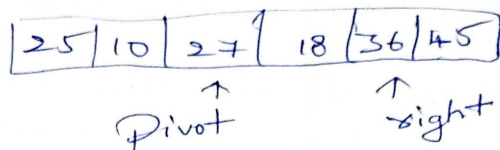 25 10 27 18 36 45
Pivot right